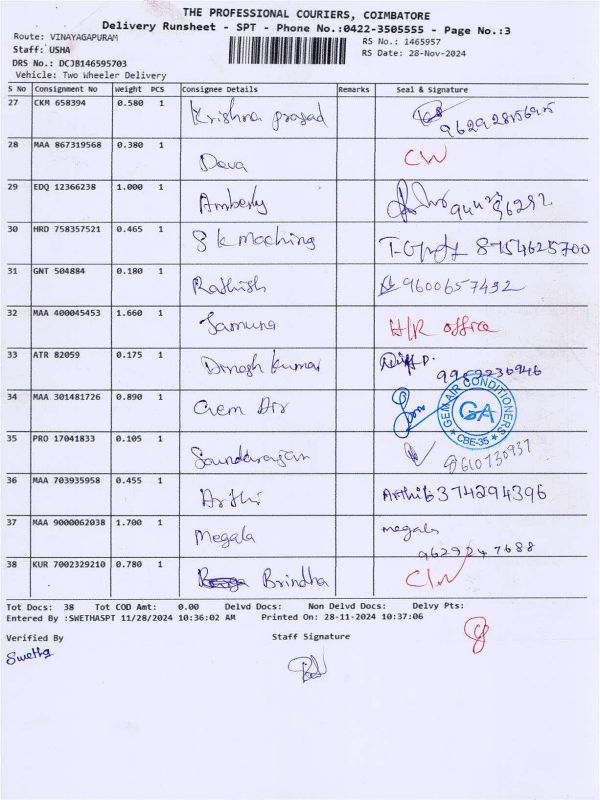 THE PROFESSIONAL COURIERS, COIMBATORE
Delivery Runsheet - SPT - Phone No.:0422-3505555 - Page No.:3
Route: VINAYAGAPURAM
RS No.: 1465957
Staff: USHA
RS Date: 28-Nov-2024
DRS No.: DCJB146595703
Vehicle: Two Wheeler Delivery
S No Consignment No Weight PCS Consignee Details Remarks Seal & Signature
27 CKM 658394 0.580 1 Krishna prasad
28 MAA 867319568 0.380 1 Deva CW
29 EDQ 12366238 1.000 1 Amberly
30 HRD 758357521 0.465 1 S k maching 8754625700
31 GNT 504884 0.180 1 Rathish 9600657432
32 MAA 400045453 1.660 1 Jamuna H/R office
33 ATR 82059 0.175 1 Dinesh kumar 9952236946
34 MAA 301481726 0.890 1 Gem Air
GEM AIR CONDITIONERS
GA
★ CBE-35 ★
35 PRO 17041833 0.105 1 Soundarajan 9610730937
36 MAA 703935958 0.455 1 Arthi Arthi 6374294396
37 MAA 9000062038 1.700 1 Megala megala
9629247688
38 KUR 7002329210 0.780 1 Brindha C/W
Tot Docs: 38 Tot COD Amt: 0.00 Delvd Docs: Non Delvd Docs: Delvy Pts:
Entered By :SWETHASPT 11/28/2024 10:36:02 AM Printed On: 28-11-2024 10:37:06
Verified By Staff Signature
Swetha